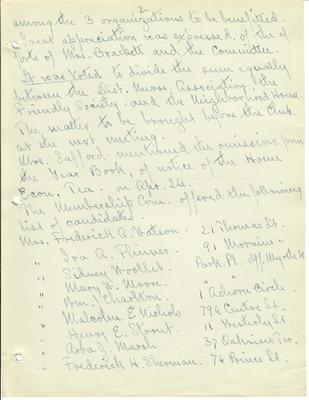 2
among the 3 organizations to be benefitted.
Great appreciation was expressed, of the ef-
forts of Mrs. Brackett and the Committee.
It was Voted to divide the sum equally
between the Dist. Nurse Association, the
Friendly Society and the Neighborhood House.
The matter to be brought before the Club
at the next meeting.
Mrs. Safford mentioned the omission from
the Year Book, of notice of the Home
Econ. Tea. on Apr. 26.
The Membership Com. offered the following
list of candidates.
Mrs. Frederick A. Watson. 21 Thomas St.
" Ira A. Flinner 91 Moraine "
" Sidney Woollet. Park Pl. off Myrtle St
" Mary W. Moore.
" Wm. J. Charlton. 1 Achorn Circle
" Malcolm E Nichols. 796 Centre St.
" Henry E. Strout. 11 Westerly St.
" Arba J. Marsh. 37 Oakview Ter.
" Frederick H. Sherman. 76 Prince St.